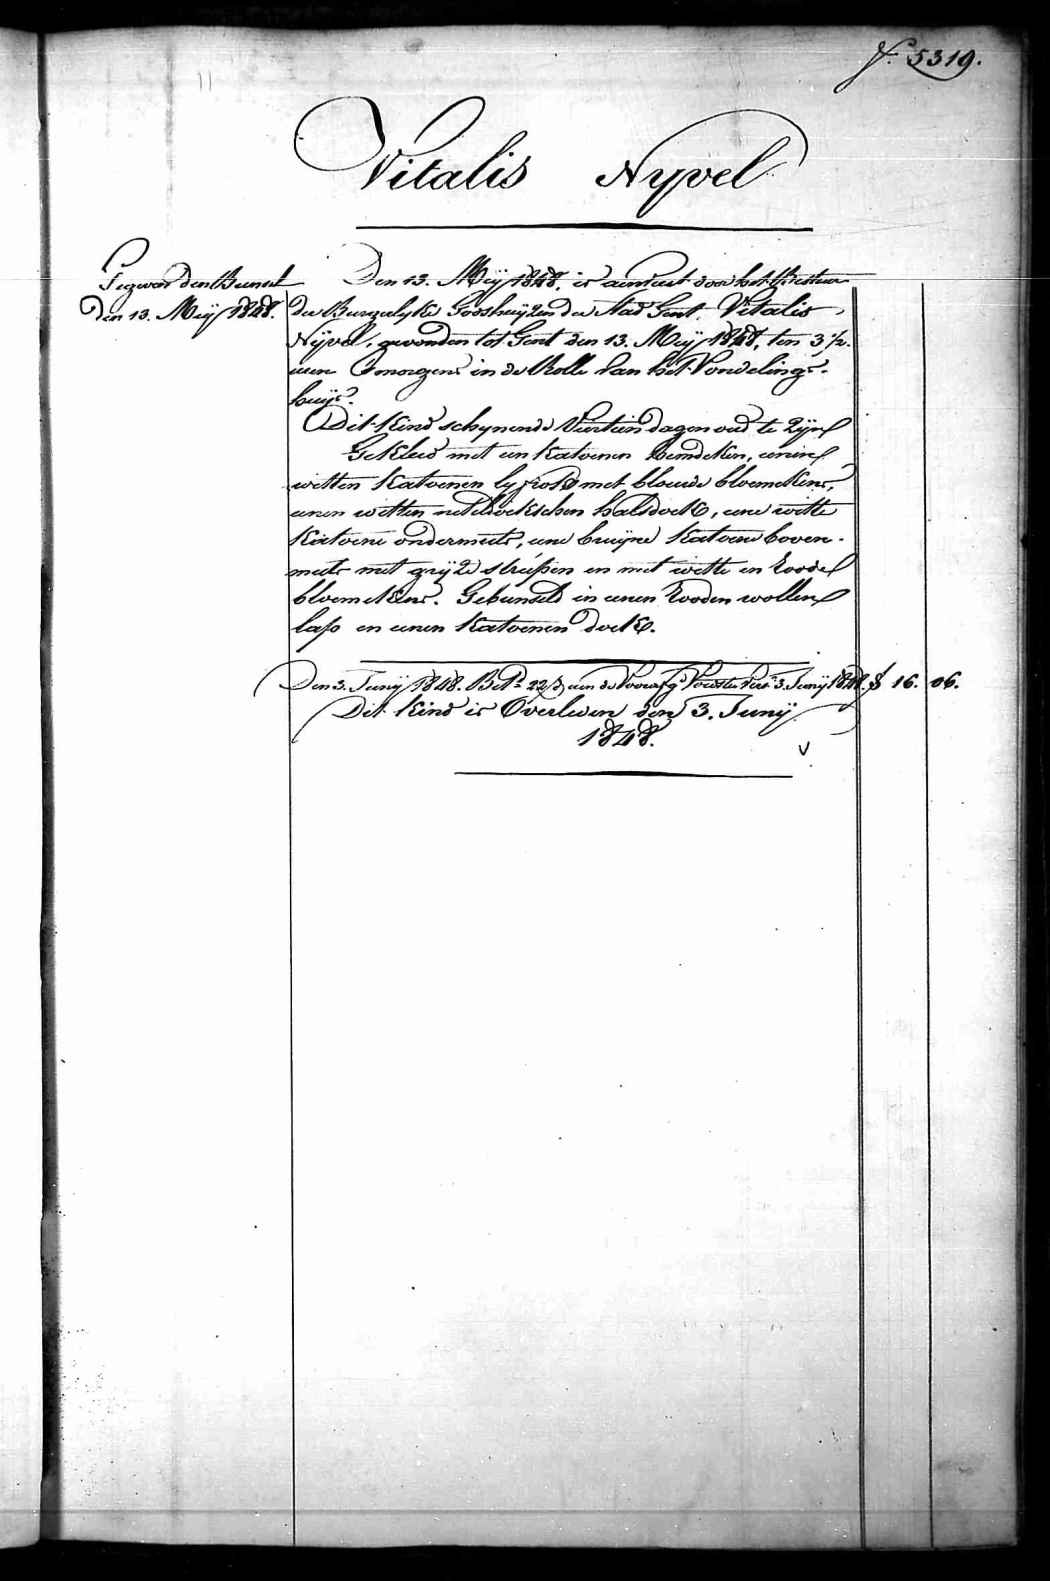 N.º 5319.
Vitalis Nyvel
den 13. Meÿ 1848.
Den 13. Meÿ 1848, is aenveert door het Bestuer
der Burgerlyke Godshuÿzen der Stad Gent, Vitalis
Nÿvel, gevonden tot Gent den 13. Meÿ 1848, ten 3 1/2.
uren 's morgens in de Rolle van het Vondelings-
huÿs.
Dit kind schynende Viertien dagen oud te Zÿn
Gekleed met een katoenen hemdeken, eenen
witten katoenen lyfrok met blauwe bloemekens,
eenen witten neteldoekschen halsdoek, eene witte
katoene ondermuts, eene bruÿne katoene boven-
muts met grÿze streépen en met witte en roode
bloemekens. Gebundeld in eenen rooden wollen
lap en eenen katoenen doek.
Den 3. Junÿ 1848. 3. Junÿ 1848. 16. 06.
Dit kind is Overleden den 3. Junÿ
1848.